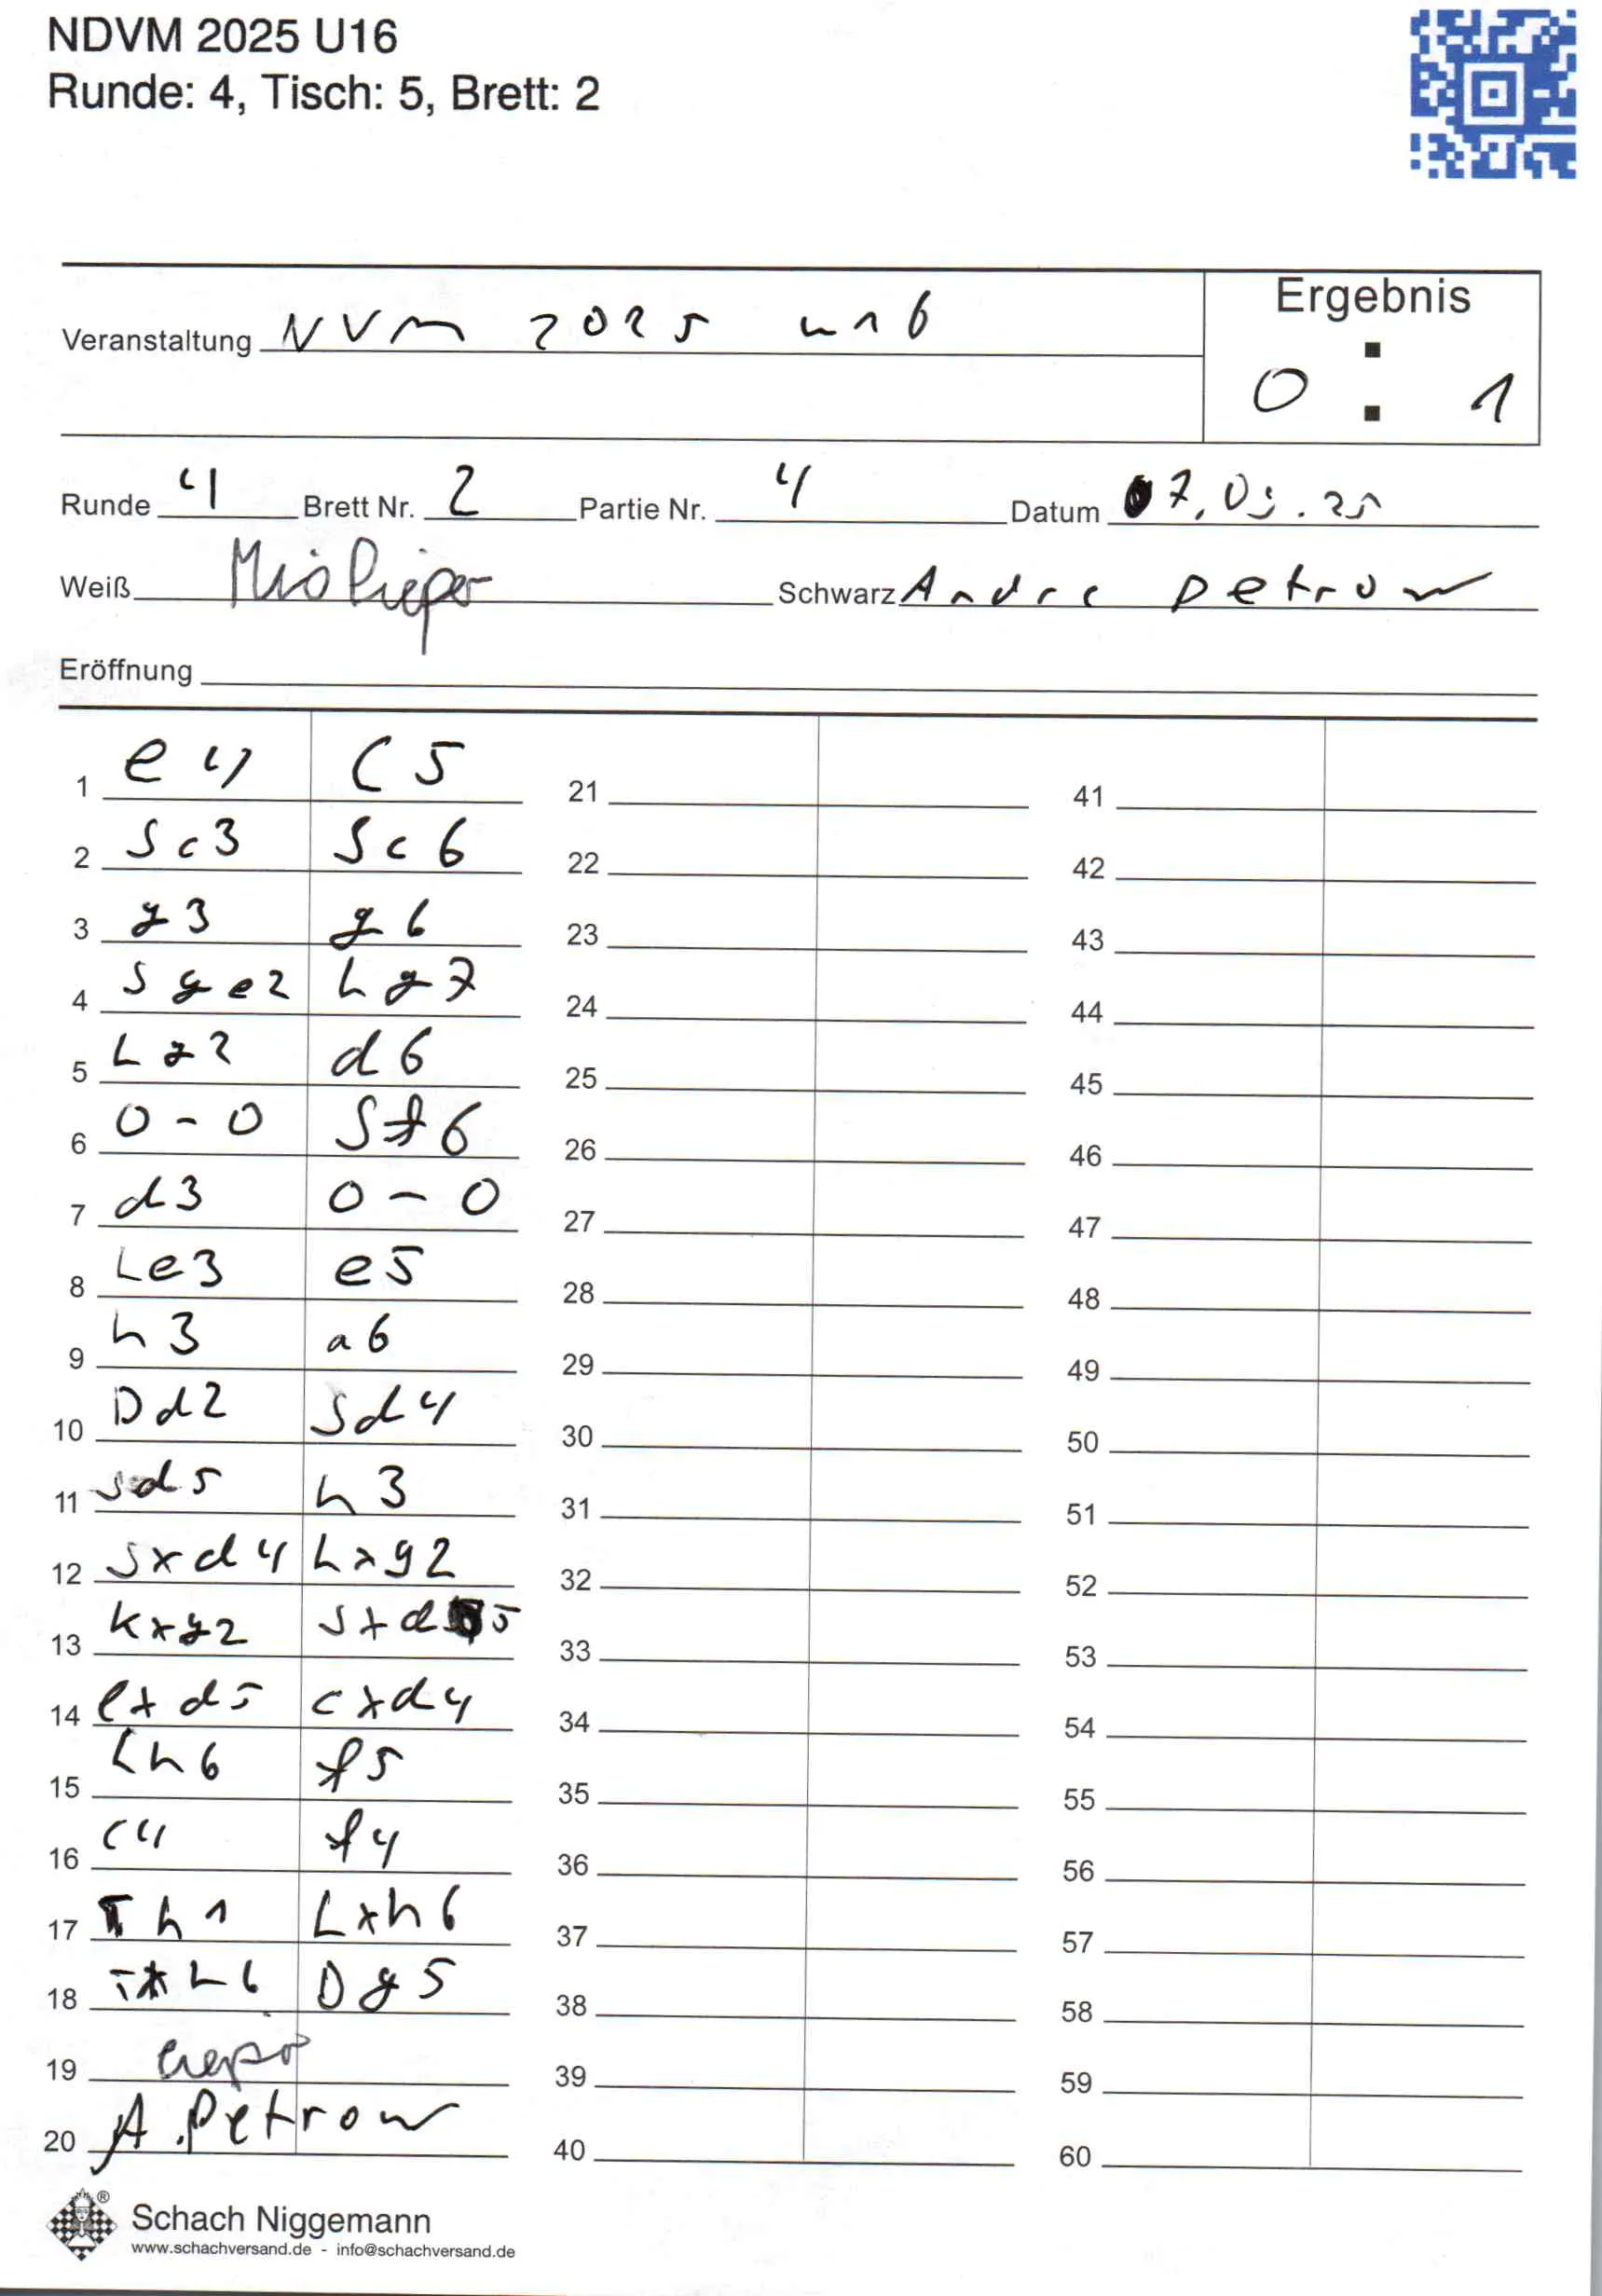 NDVM 2025 U16
Runde: 4, Tisch: 5, Brett: 2
Veranstaltung NVM 2025 u16
Ergebnis
0 : 1
Runde 4 Brett Nr. 2 Partie Nr. 4 Datum 07.05.25
Weiß Mio Pieper Schwarz Andre Petrow
Eröffnung
1 e4 c5 21 41
2 Sc3 Sc6 22 42
3 g3 g6 23 43
4 Sge2 Lg7 24 44
5 Lg2 d6 25 45
6 0-0 Sf6 26 46
7 d3 0-0 27 47
8 Le3 e5 28 48
9 h3 a6 29 49
10 Dd2 Sd4 30 50
11 Sd5 h3 31 51
12 Sxd4 Lxg2 32 52
13 Kxg2 Sxd5 33 53
14 exd5 cxd4 34 54
15 Lh6 f5 35 55
16 c4 f4 36 56
17 Th1 Lxh6 37 57
18 Txh6 Dg5 38 58
19 39 59
20 A. Petrow 40 60
® Schach Niggemann
www.schachversand.de - info@schachversand.de